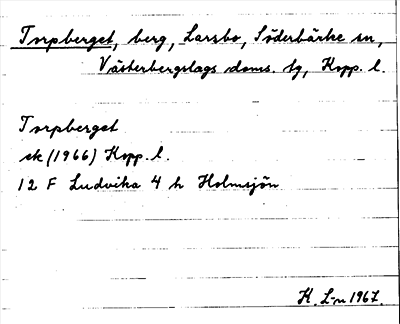 Torpberget, berg, Larsbo, Söderbärke sn,
Västerbergslags doms. tg, Kopp. l.
Torpberget
ek (1966) Kopp. l.
12 F Ludvika 4 h Holmsjön
H. L-n 1967.